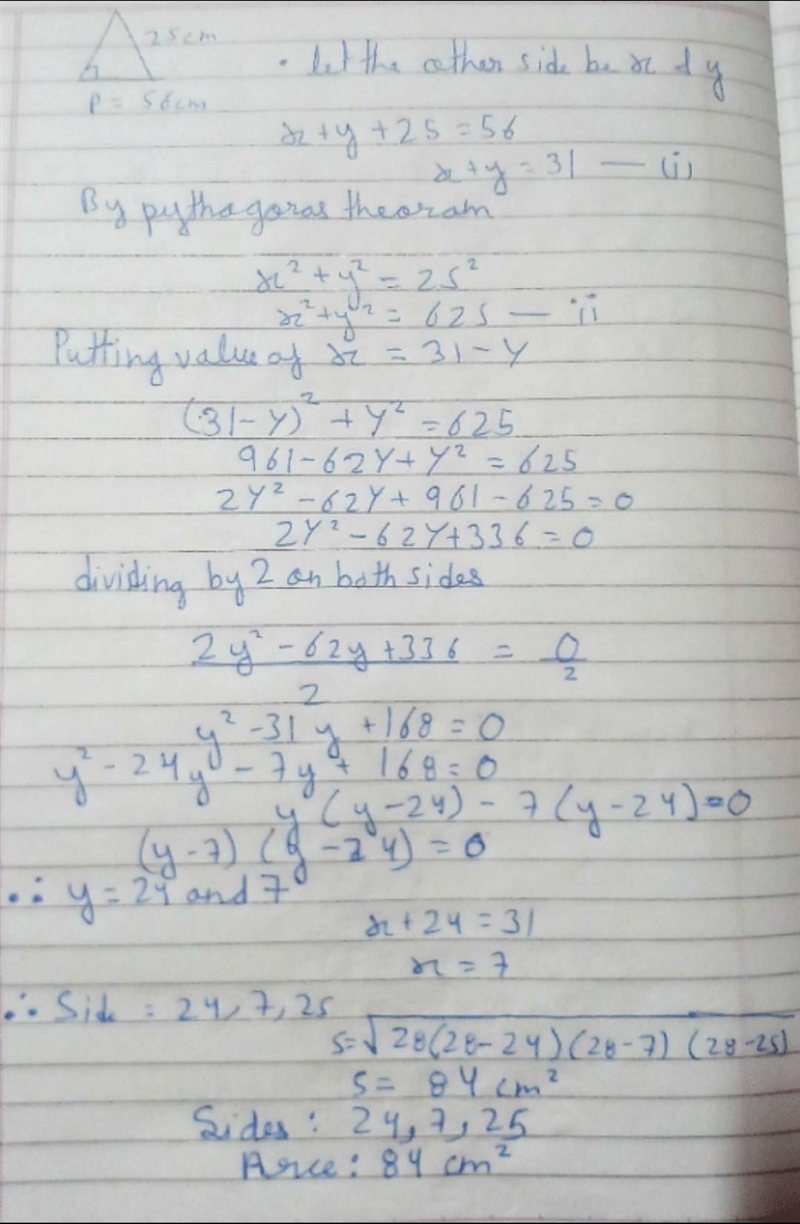 25cm
P = 56cm
• let the other side be x & y
x + y + 25 = 56
x + y = 31 — (i)
By pythagoras theoram
x² + y² = 25²
x² + y² = 625 — ii
Putting value of x = 31 - Y
(31 - Y)² + Y² = 625
961 - 62Y + Y² = 625
2Y² - 62Y + 961 - 625 = 0
2Y² - 62Y + 336 = 0
dividing by 2 on both sides
2y² - 62y + 336 = 0
2 2
y² - 31y + 168 = 0
y² - 24y - 7y + 168 = 0
y (y - 24) - 7 (y - 24) = 0
(y - 7) (y - 24) = 0
∴ y = 24 and 7
x + 24 = 31
x = 7
∴ Side = 24, 7, 25
s = √28(28 - 24) (28 - 7) (28 - 25)
s = 84 cm²
Sides : 24, 7, 25
Arce : 84 cm²